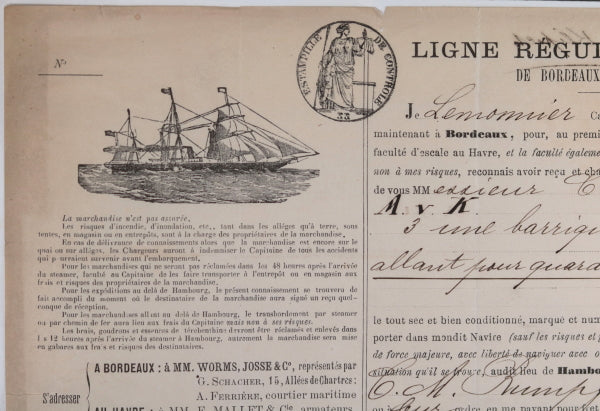 N°
ESTAMPILLE DE CONTROLE
33
La marchandise n'est pas assurée.
Les risques d'incendie, d'inondation, etc., tant dans les allèges qu'à terre, sous
tentes, en magasin ou en entrepôts, sont à la charge des propriétaires de la marchandise.
En cas de délivrance de connaissements alors que la marchandise est encore sur le
quai ou sur allèges, les Chargeurs auront à indemniser le Capitaine de tous les accidents
qui pourraient survenir avant l'embarquement.
Pour les marchandises qui ne seront pas réclamées dans les 48 heures après l'arrivée
du steamer, faculté au Capitaine de les faire transporter à l'entrepôt ou en magasin aux
frais et risques des propriétaires de la marchandise.
Pour les expéditions au delà de Hambourg, le présent connaissement se trouvera de
fait accompli du moment où le destinataire de la marchandise aura signé un reçu quel-
conque de réception.
Pour les marchandises allant au delà de Hambourg, le transbordement par steamer
ou par chemin de fer aura lieu aux frais du Capitaine mais non à ses risques.
Les brais, goudrons et essences de térébenthine devront être réclamés et enlevés dans
les 12 heures après l'arrivée du steamer à Hambourg, autrement la marchandise sera mise
en gabares aux frais et risques des destinataires.
S'adresser
A BORDEAUX : à MM. WORMS, JOSSE & C°, représentés par
G. SCHACHER, 15, Allées de Chartres;
A. FERRIÈRE, courtier maritime
AU HAVRE : à MM. E. MALLET & Cie, armateurs
LIGNE RÉGUL
DE BORDEAUX
Je Lemonnier Ca
maintenant à Bordeaux, pour, au premie
faculté d'escale au Havre, et la faculté égaleme
non à mes risques, reconnais avoir reçu et cha
de vous MM essieur
A v K
3 une barriqu
allant pour quara
le tout sec et bien conditionné, marqué et num
porter dans mondit Navire (sauf les risques et
de force majeure, avec liberté de naviguer avec o
situation qu'il se trouve, audit lieu de Hambo